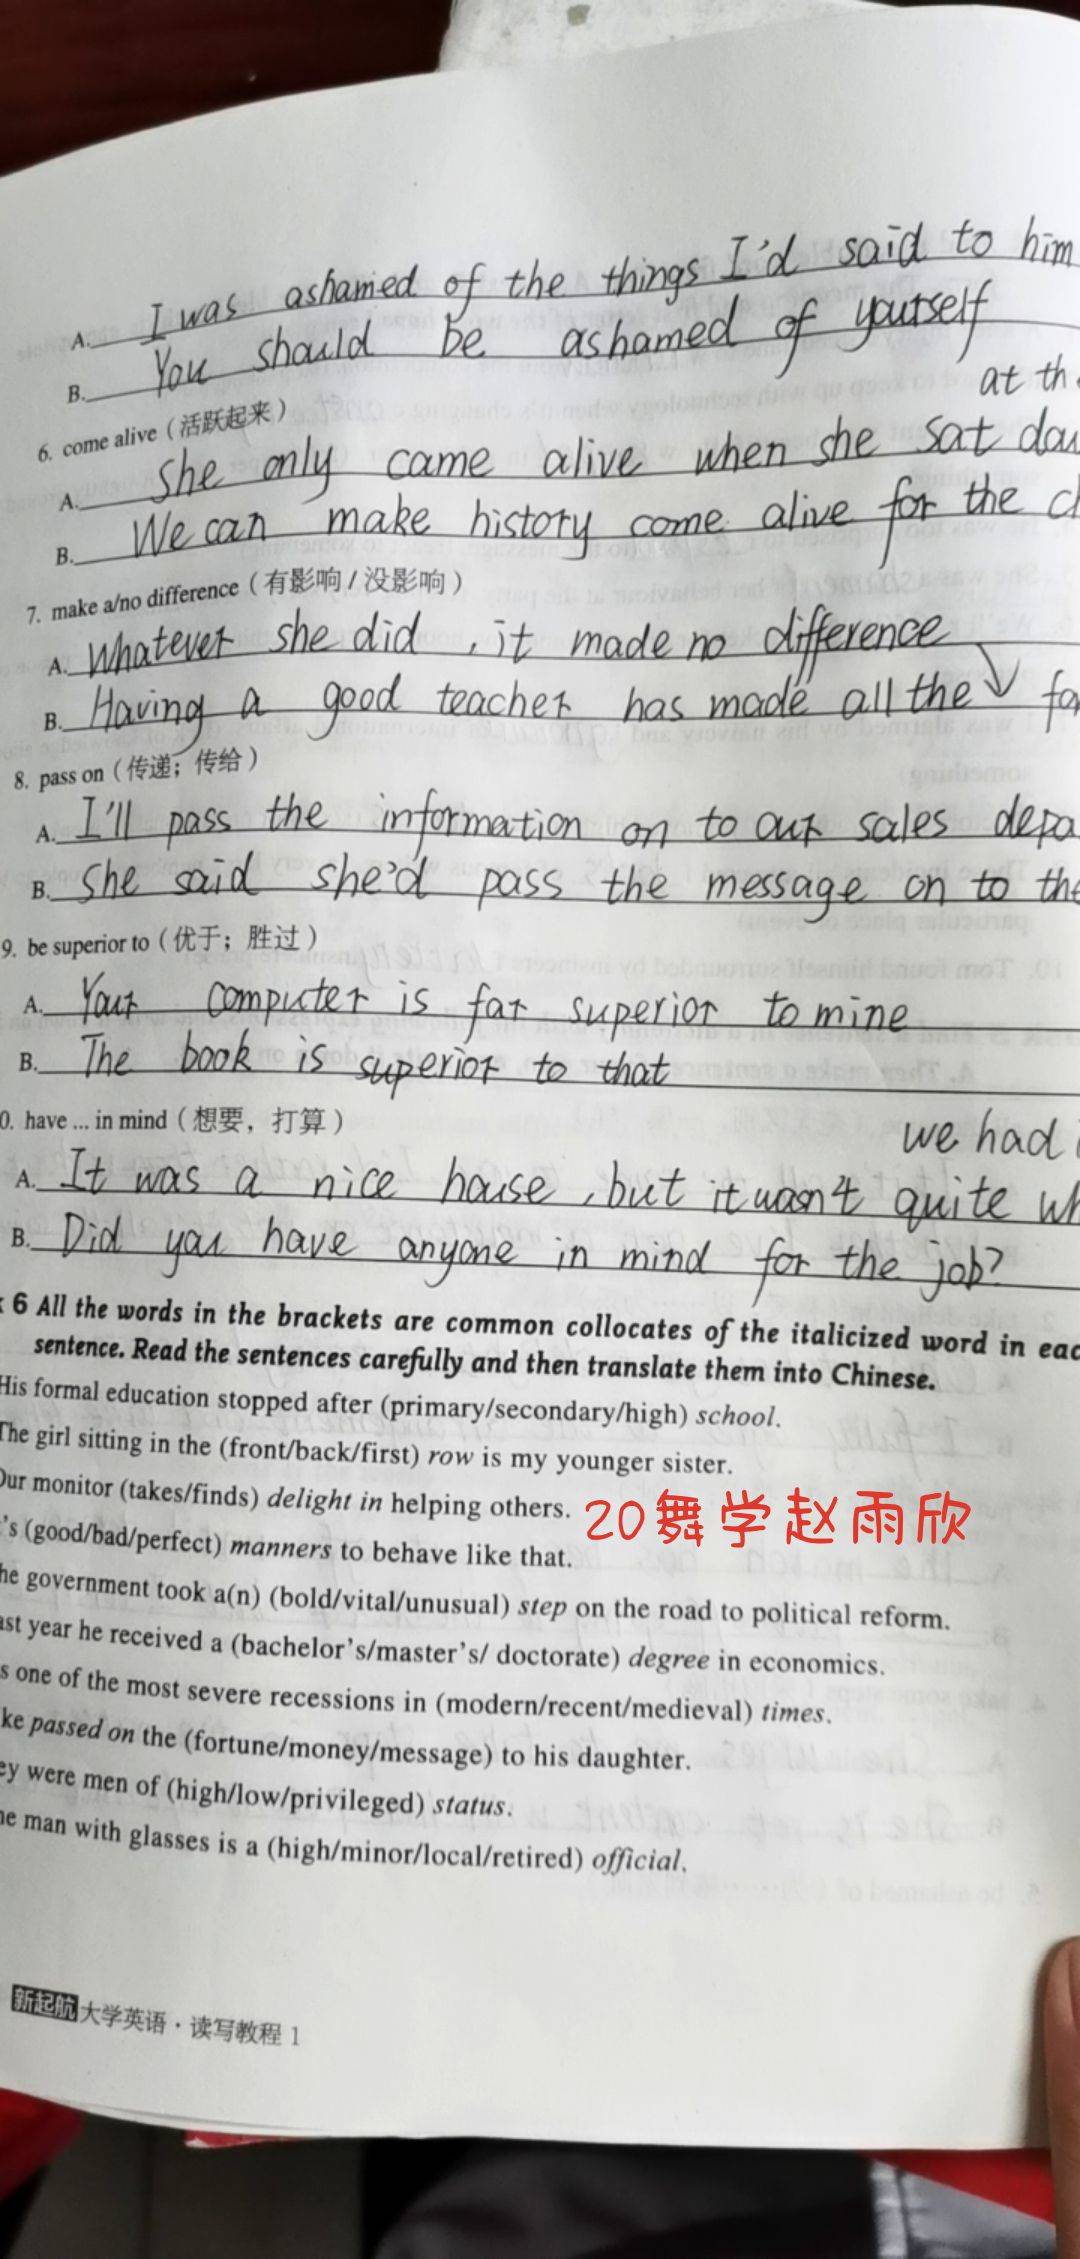 A. I was ashamed of the things I'd said to him
B. You should be ashamed of yourself
6. come alive（活跃起来）
at the
A. She only came alive when she sat
B. We can make history come alive for the
7. make a/no difference（有影响/没影响）
A. Whatever she did, it made no difference
B. Having a good teacher has made all the
8. pass on（传递；传给）
A. I'll pass the information on to our sales
B. She said she'd pass the message on to the
9. be superior to（优于；胜过）
A. Your computer is far superior to mine
B. The book is superior to that
0. have ... in mind（想要，打算）
we had
A. It was a nice house, but it wasn't quite
B. Did you have anyone in mind for the job?
6 All the words in the brackets are common collocates of the italicized word in eac
sentence. Read the sentences carefully and then translate them into Chinese.
His formal education stopped after (primary/secondary/high) school.
The girl sitting in the (front/back/first) row is my younger sister.
Our monitor (takes/finds) delight in helping others.
20舞学赵雨欣
's (good/bad/perfect) manners to behave like that.
he government took a(n) (bold/vital/unusual) step on the road to political reform.
ast year he received a (bachelor's/master's/ doctorate) degree in economics.
s one of the most severe recessions in (modern/recent/medieval) times.
ke passed on the (fortune/money/message) to his daughter.
ey were men of (high/low/privileged) status.
he man with glasses is a (high/minor/local/retired) official.
新起航 大学英语·读写教程 1